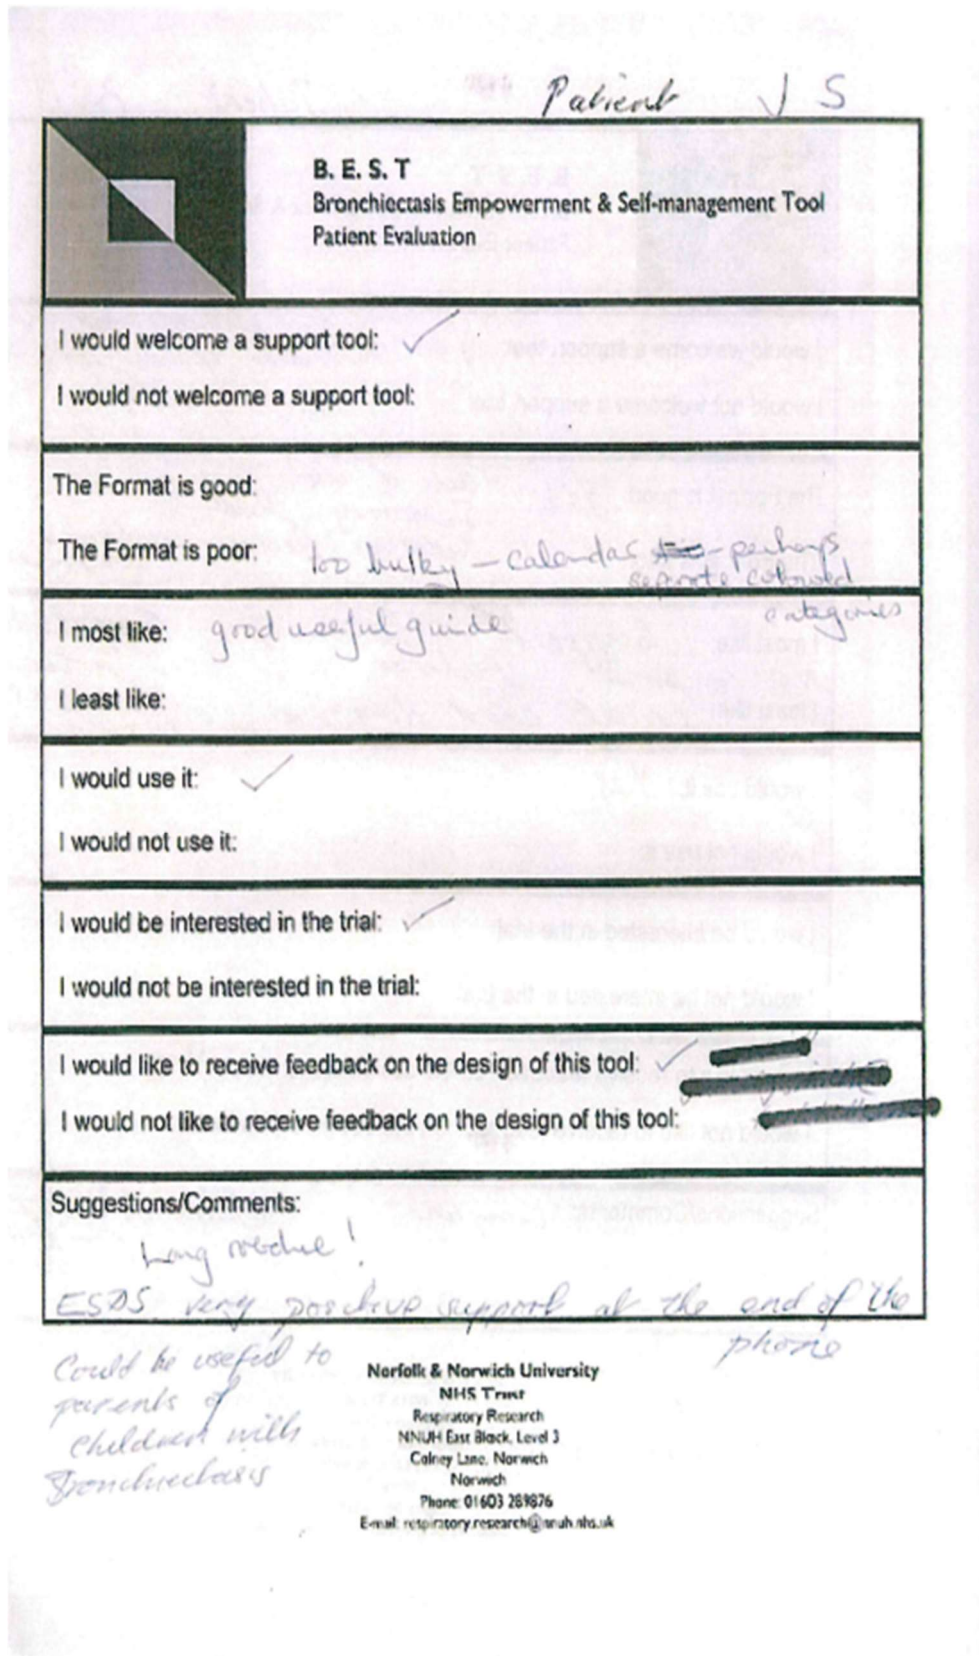 Patient J S
B. E. S. T
Bronchiectasis Empowerment & Self-management Tool
Patient Evaluation
I would welcome a support tool: ✓
I would not welcome a support tool:
The Format is good:
The Format is poor: too bulky – calendar – perhaps
seperate coloured
categories
I most like: good useful guide
I least like:
I would use it: ✓
I would not use it:
I would be interested in the trial: ✓
I would not be interested in the trial:
I would like to receive feedback on the design of this tool: ✓
I would not like to receive feedback on the design of this tool:
Suggestions/Comments:
Long !
very support at the end of the
phone
Could be useful to
parents of
children with
Bronchiectasis
Norfolk & Norwich University
NHS Trust
Respiratory Research
NNUH East Block, Level 3
Colney Lane, Norwich
Norwich
Phone: 01603 289876
E-mail: respiratory.research@nnuh.nhs.uk